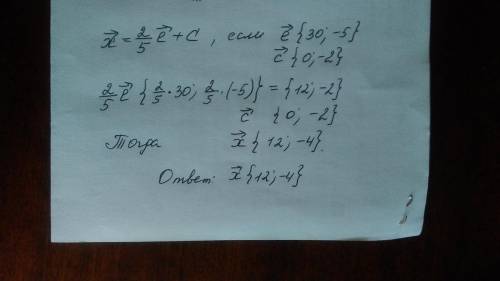 x⃗ = 2/5 e⃗ + c , если e⃗ {30; -5}
c⃗ {0; -2}
2/5 e⃗ {2/5 · 30; 2/5 · (-5)} = {12; -2}
c⃗ {0; -2}
Тогда x⃗ {12; -4}.
Ответ: x⃗ {12; -4}